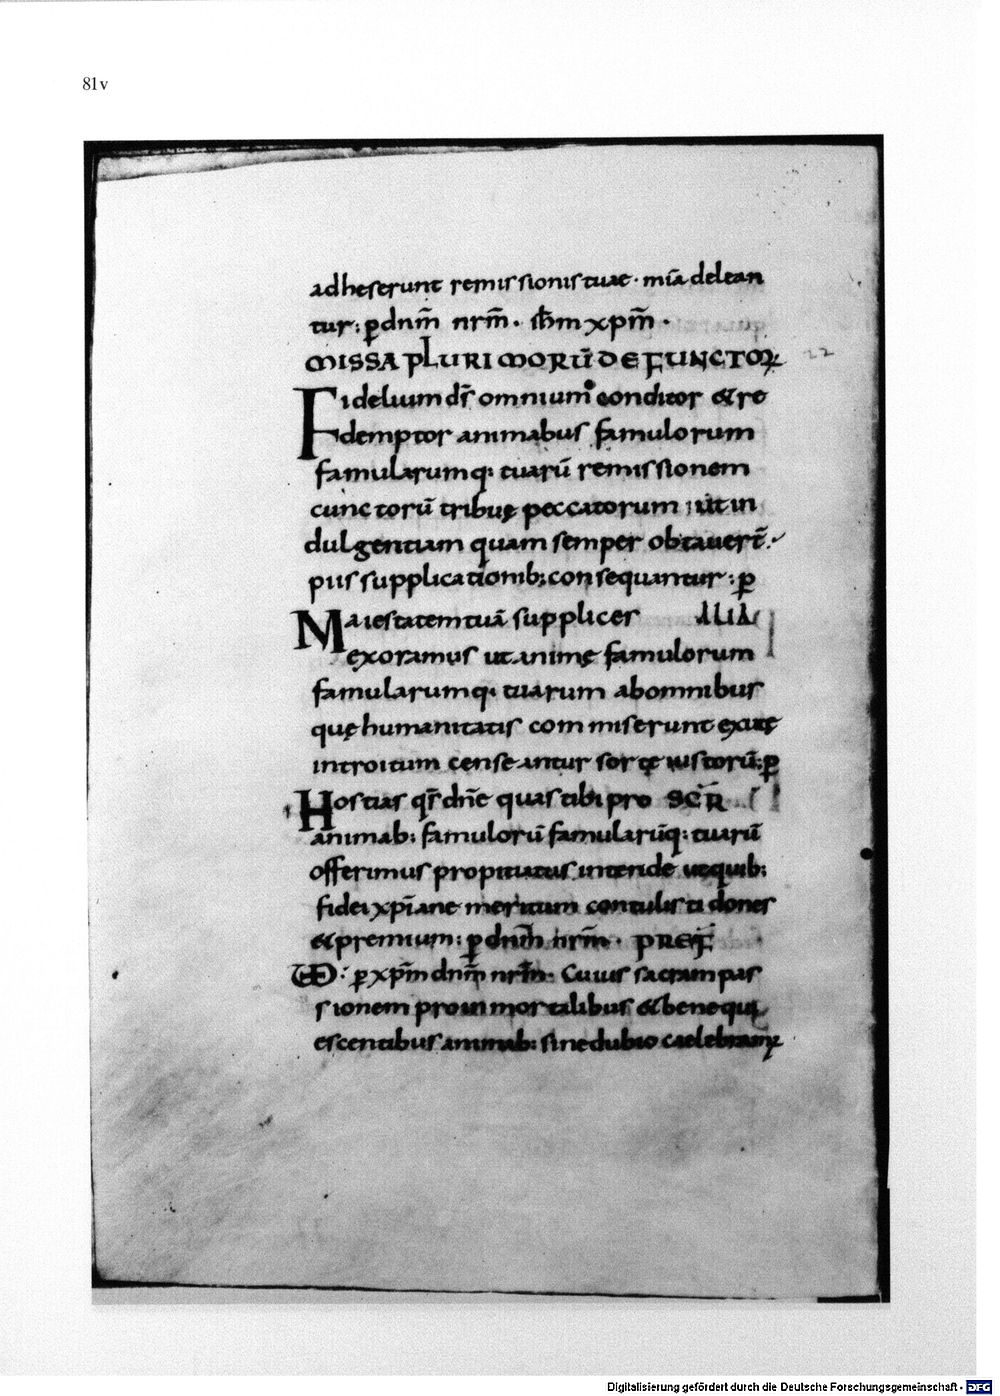 81v
adheserunt remissionis tuae · mīa delean
tur : ꝑ dnm̄ nrm̄ · ihm̄ xpm̄ ·
MISSA PLURIMORŪ DE FUNCTOꝜ
Fidelium dſ̄ omnium conditor & re
demptor animabus famulorum
famularumq; tuarū remissionem
cunctorū tribuę peccatorum ; ut in
dulgentiam quam semper obtauerт̄ .
piis supplicationib; consequantur : ꝑ
Maiestatem tuā supplices ALIA
exoramus ut animę famulorum
famularumq; tuarum ab omnibus
quę humanitatis commiserunt exutę
introitum censeantur sorte iustorū : ꝑ
Hostias qſ̄ dn̄e quas tibi pro SCR̄
animab; famulorū famularūq; tuarū
offerimus propitiatus intende ut quib;
fidei xp̄iane meritum contulisti dones
& premium : ꝑ dnm̄ nrm̄ · PREF
VD : ꝑ xpm̄ dnm̄ nrm̄ · Cuius sacram pas
sionem pro inmortalibus & bene qui
escentibus animab; sine dubio caelebramꝰ
Digitalisierung gefördert durch die Deutsche Forschungsgemeinschaft - DFG